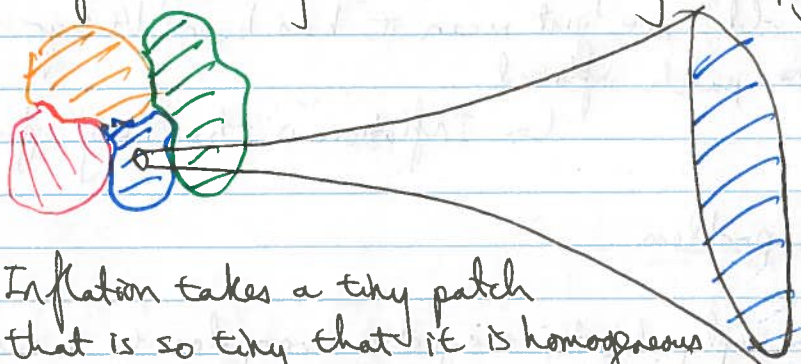 Inflation takes a tiny patch
that is so tiny that it is homogeneous